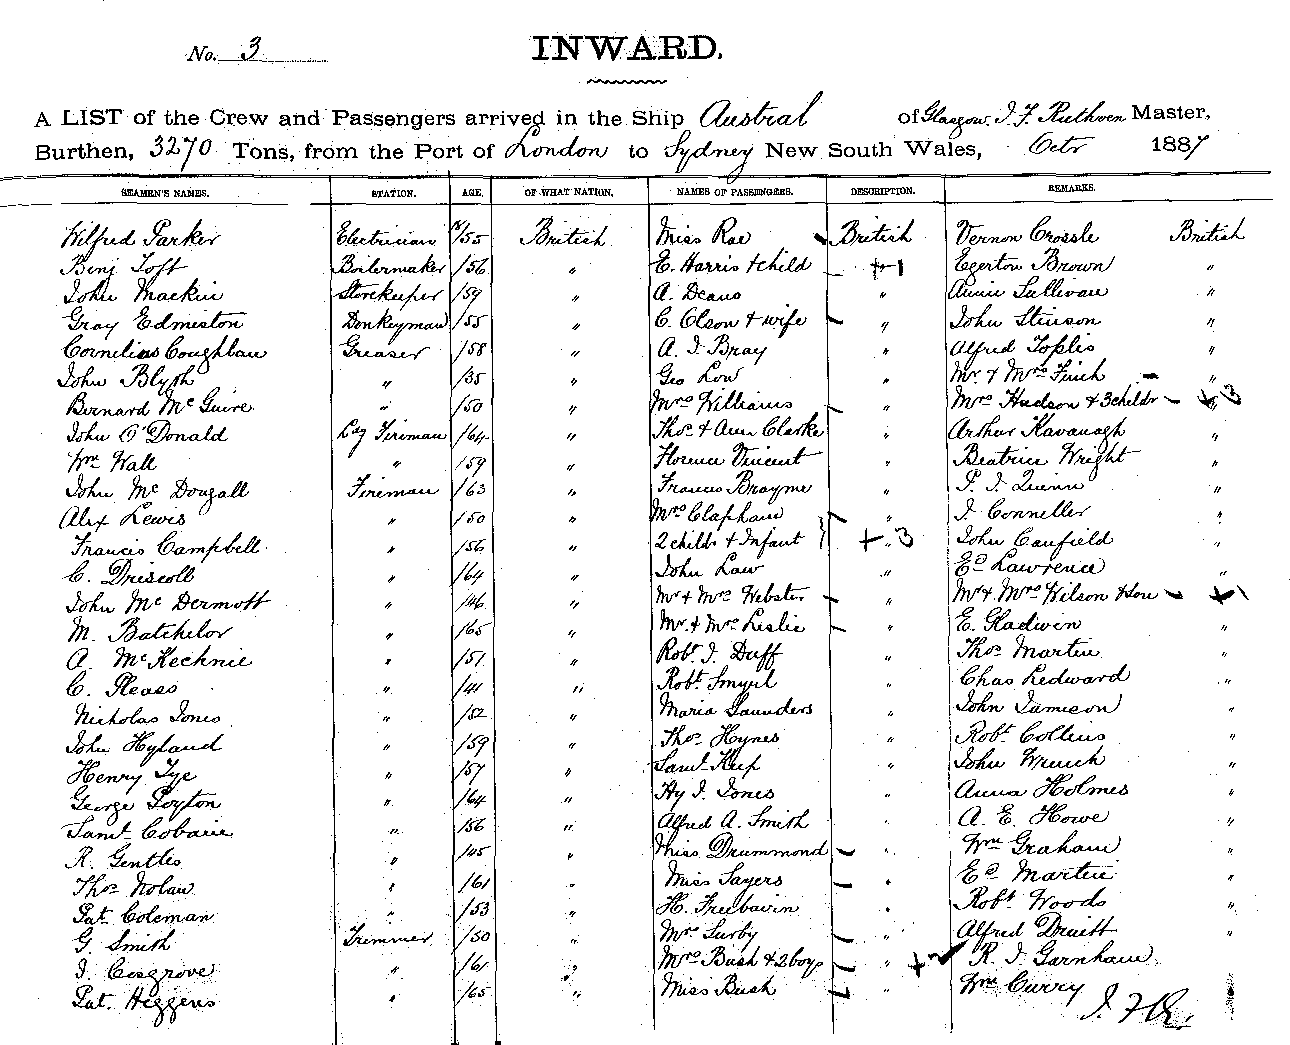 No. 3
INWARD.
A LIST of the Crew and Passengers arrived in the Ship Austral of Glasgow. J. F. Ruthven Master,
Burthen, 3270 Tons, from the Port of London to Sydney New South Wales, Octr 1887
SEAMEN'S NAMES. STATION. AGE. OF WHAT NATION. NAMES OF PASSENGERS. DESCRIPTION. REMARKS.
Wilfred Parker Electrician 18/55 British Miss Rae British Vernon Crossle British
Benj Toft Boilermaker /56 " E. Harris & child + 1 Egerton Brown "
John Mackie Storekeeper /59 " A. Deans " Annie Sullivan "
Gray Edmiston Donkeyman /55 " C. Olson & wife " John Stinson "
Cornelius Coughlan Greaser /58 " A. J. Bray " Alfred Toplis "
John Blyth " /35 " Geo Low " Mr. & Mrs Finch "
Bernard McGuire " /50 " Mrs Williams " Mrs Hudson & 3 childr + 3
John O'Donald Ldg Fireman /64 " Thos & Ann Clarke " Arthur Kavanagh "
Wm Wall " /59 " Florence Vincent " Beatrice Wright "
John McDougall Fireman /63 " Francis Brayme " P. J. Quinn "
Alex Lewis " /50 " Mrs Clapham " J. Conneller "
Francis Campbell " /56 " 2 childr & Infant } + 3 John Canfield "
C. Driscoll " /64 " John Law " Ed Lawrence "
John McDermott " /46 " Mr & Mrs Webster " Mr & Mrs Wilson & Son + 1
M. Batchelor " /65 " Mr. & Mrs Leslie " E. Gladwin "
A. McKechnie " /51 " Robt J. Duff " Thos Martin "
C. Pleass " /41 " Robt Smyrl " Chas Ledward "
Nicholas Jones " /52 " Maria Saunders " John Jamieson "
John Hyland " /59 " Thos Hynes " Robt Collins "
Henry Tye " /57 " Saml Keep " John Wrench "
George Poyton " /64 " Hy J. Jones " Anna Holmes "
Saml Cobain " /56 " Alfred A. Smith " A. E. Howe "
R. Gentles " /45 " Miss Drummond " Wm Graham "
Thos Nolan " /61 " Miss Sayers " Ed Martin "
Pat Coleman " /53 " H. Freebairn " Robt Woods "
G. Smith Trimmer /50 " Mrs Surby " Alfred Druitt "
J. Cosgrove " /61 " Mrs Bush & 2 boys " + 2 R. J. Garnham
Pat. Higgens " /65 " Miss Bush " Wm Curry
J. F. R.